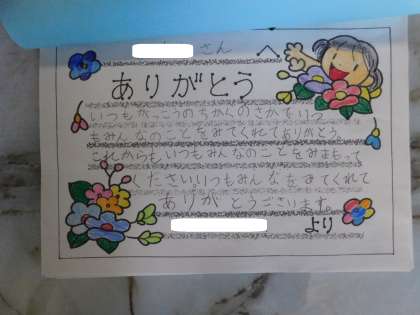 さんへ
ありがとう
いつもがっこうのちかくのさかでいつ
もみんなのことをみてくれてありがとう。
これからもいつもみんなのことをみまもって
くださいいつもみんなをみてくれて
ありがとうございます。
より